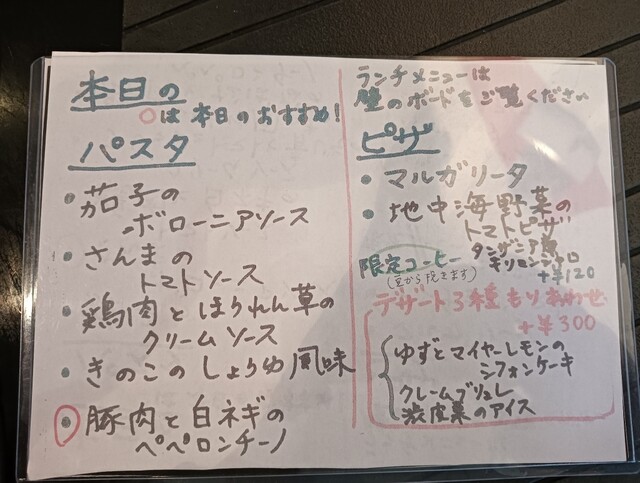 本日の
○は本日のおすすめ!
パスタ
・茄子の
ボローニアソース
・さんまの
トマトソース
・鶏肉とほうれん草の
クリームソース
・きのこのしょうゆ風味
・豚肉と白ネギの
ペペロンチーノ
ランチメニューは
壁のボードをご覧ください
ピザ
・マルガリータ
・地中海野菜の
トマトピザ
限定コーヒー
タンザニア産
キリマンジャロ
(豆から挽きます)
+¥120
デザート3種もりあわせ
+¥300
ゆずとマイヤーレモンの
シフォンケーキ
クレームブリュレ
渋皮栗のアイス